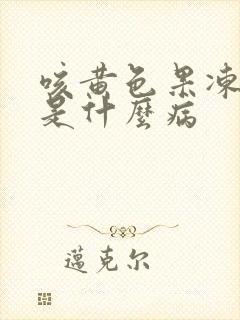 咳黄色果凍
是什麼病
邁克尔